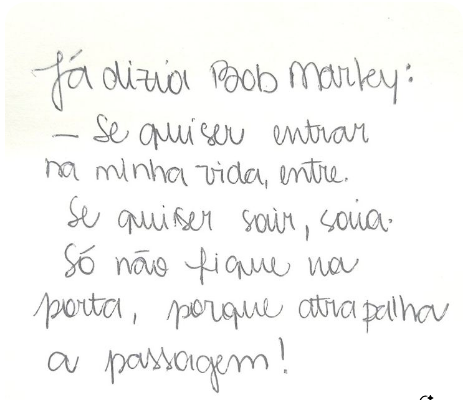 Já dizia Bob Marley:
— Se quiser entrar
na minha vida, entre.
Se quiser sair, saia.
Só não fique na
porta, porque atrapalha
a passagem!